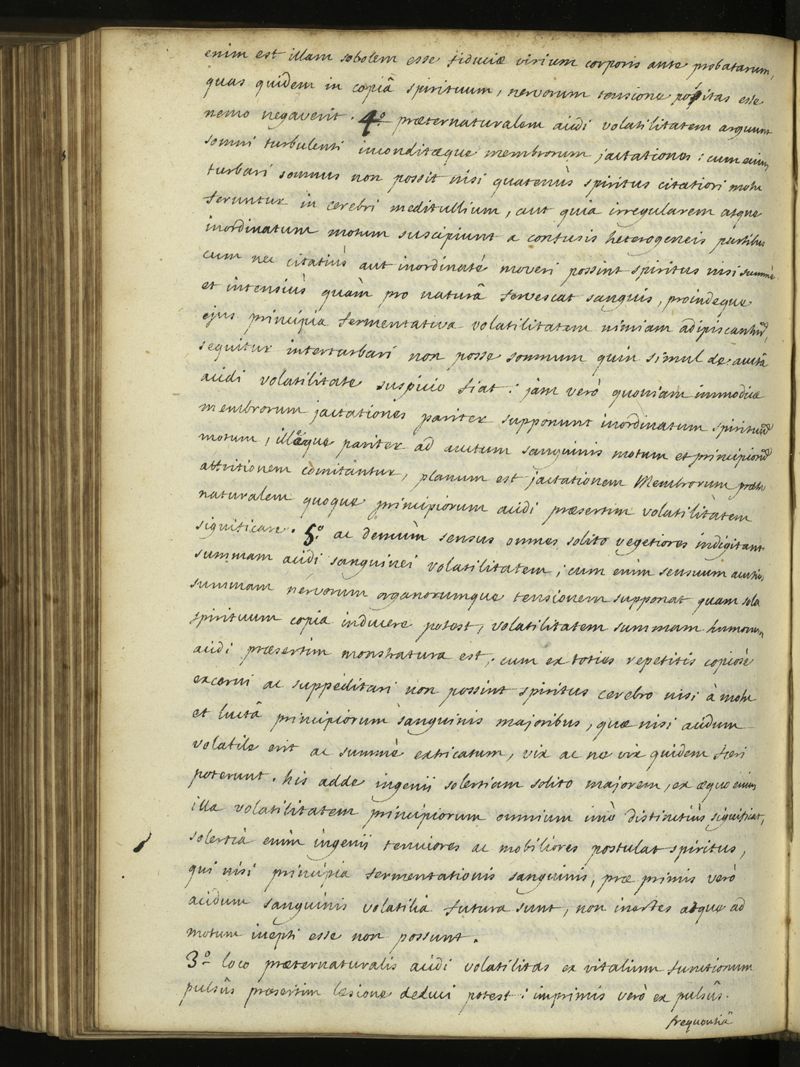 enim est illam sobolem esse fiduciæ virium corporis ante probatarum,
quas quidem in copiâ spirituum, nervorum tensione positas esse
nemo negaverit. 4.º præternaturalem acidi volatilitatem arguunt
somni turbulenti inconditæque membrorum jactationes: cum enim
turbari somnus non possit nisi quatenùs spiritus citatiori motu
feruntur in cerebri meditullium, aut quia irregularem atque
inordinatum motum suscipiunt a confusis heterogeneis partibus
cum nec citatiùs aut inordinatè moveri possint spiritus nisi summè
et intensiùs quàm pro naturâ fervescat sanguis, proindeque
ejus principia fermentativa volatilitatem nimiam adipiscantur,
sequitur interturbari non posse somnum quin simul de auctâ
acidi volatilitate suspicio fiat: jàm verò quoniam immodicæ
membrorum jactationes pariter supponunt inordinatum spirituum
motum, illæque pariter ad auctum sanguinis motum et principiorum
attritionem comitantur, planum est jactationem Membrorum præter
naturalem quoque principiorum acidi præsertim volatilitàtem
significare. 5.º ac demùm sensus omnes solito vegetiores indigitant
summam acidi sanguinei volatilitatem; cum enim sensuum
summam nervorum organorumque tensionem supponat quam sola
spirituum copia inducere potest, volatilitatem summam humorum
acidi præsertim monstratura est; cum ex toties repetitis copiosè
excerni ac suppeditari non possint spiritus cerebro nisi à motu
et luctâ principiorum sanguinis majoribus, quæ nisi acidum
volatile erit ac summè extricatum, vix ac ne vix quidem fieri
poterunt. his adde ingenii solertiam solito majorem, ex æquo enim
illa volatilitatem principiorum omnium imò distinctiùs significat,
solertia enim ingenii tenuiores ac mobiliores postulat spiritus,
qui nisi principia fermentationis sanguinis, præ primis verò
acidum sanguinis volatilia futura sunt, non inertes atque ad
motum inepti esse non possunt.
3.º loco præternaturalis acidi volatilitas ex vitalium functionum
pulsûs præsertim læsione deduci potest: imprimis verò ex pulsûs.
frequentiâ